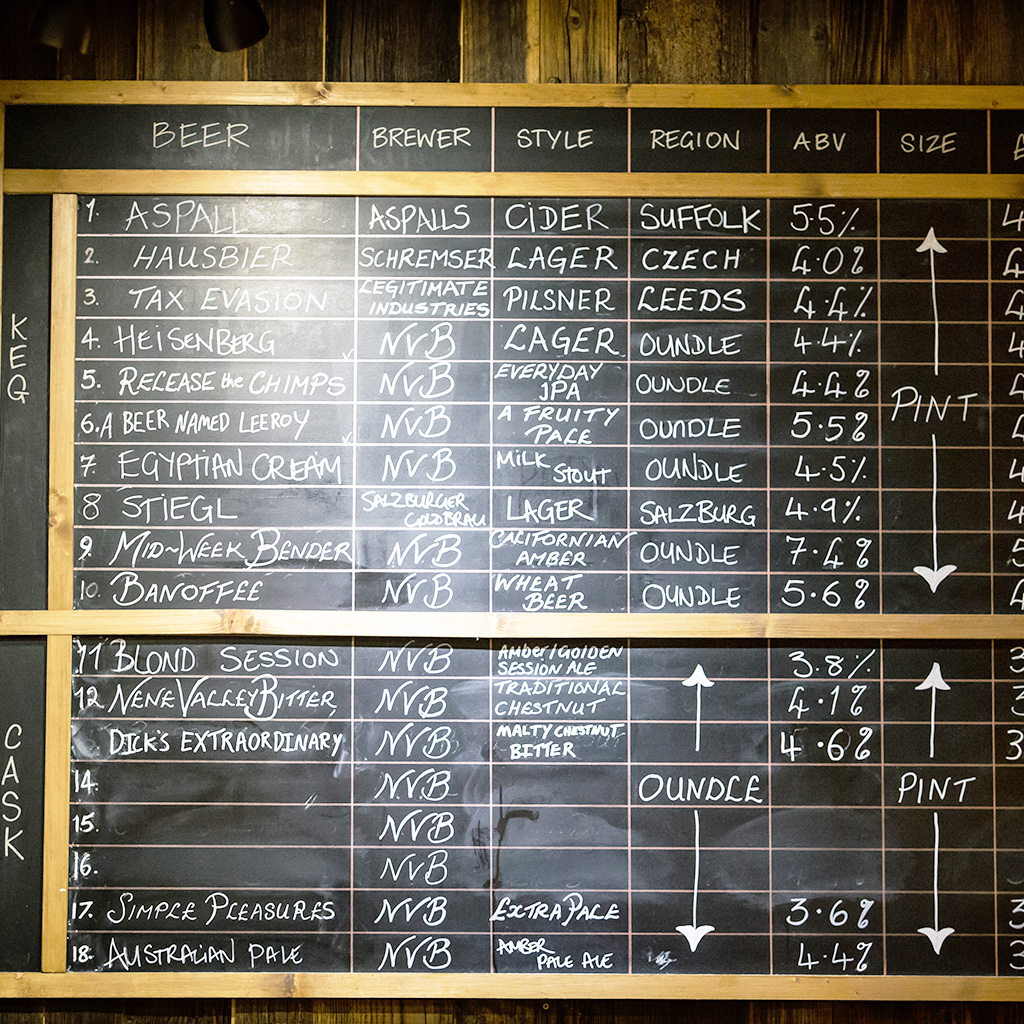 BEER BREWER STYLE REGION ABV SIZE £
KEG
1. ASPALLS ASPALLS CIDER SUFFOLK 5.5% 4
2. HAUSBIER SCHREMSER LAGER CZECH 4.0% 4
3. TAX EVASION LEGITIMATE INDUSTRIES PILSNER LEEDS 4.4% 4
4. HEISENBERG NVB LAGER OUNDLE 4.4% 4
5. RELEASE the CHIMPS NVB EVERYDAY JPA OUNDLE 4.4% 4
PINT
6. A BEER NAMED LEEROY NVB A FRUITY PALE OUNDLE 5.5% 4
7. EGYPTIAN CREAM NVB MILK STOUT OUNDLE 4.5% 4
8 STIEGL SALZBURGER GOLDBRAU LAGER SALZBURG 4.9% 4
9. MID-WEEK BENDER NVB CALIFORNIAN AMBER OUNDLE 7.4% 5
10. BANOFFEE NVB WHEAT BEER OUNDLE 5.6% 4
CASK
11 BLOND SESSION NVB Amber/GOLDEN SESSION ALE 3.8% 3
12. NENE VALLEY BITTER NVB TRADITIONAL CHESTNUT 4.1% 3
DICK'S EXTRAORDINARY NVB MALTY CHESTNUT BITTER 4.6% 3
14. NVB OUNDLE PINT
15. NVB
16. NVB
17. SIMPLE PLEASURES NVB EXTRA PALE 3.6% 3
18. AUSTRALIAN PALE NVB AMBER PALE ALE 4.4% 3